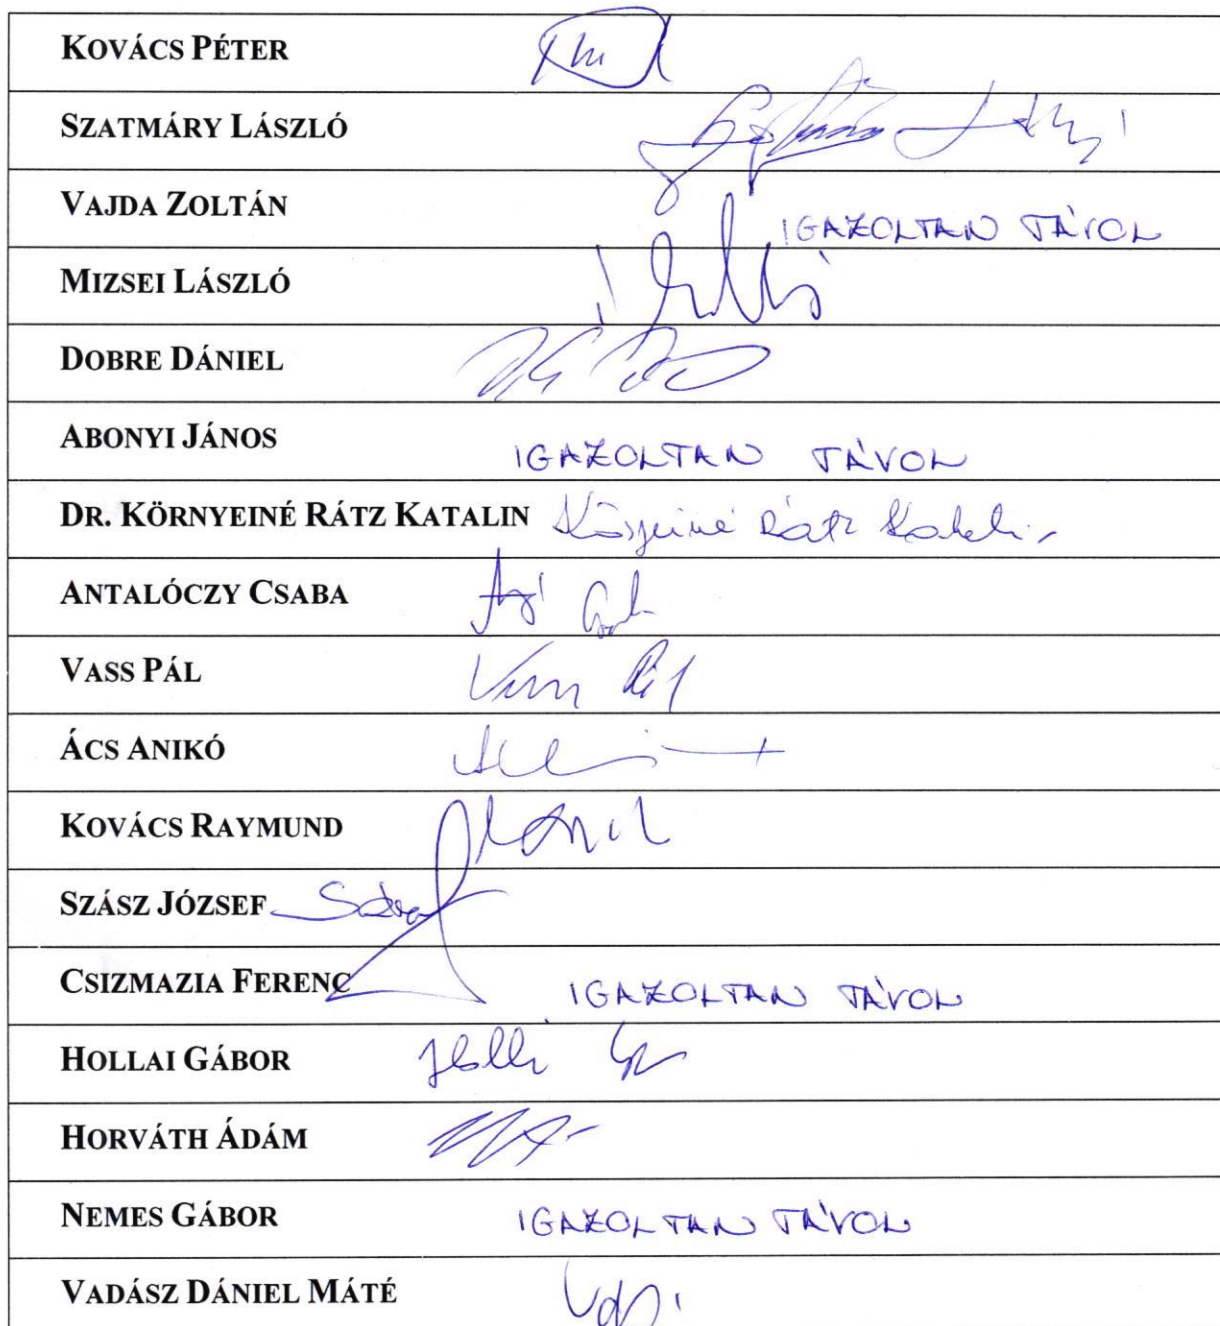 KOVÁCS PÉTER
SZATMÁRY LÁSZLÓ
VAJDA ZOLTÁN IGAZOLTAN TÁVOL
MIZSEI LÁSZLÓ
DOBRE DÁNIEL
ABONYI JÁNOS IGAZOLTAN TÁVOL
DR. KÖRNYEINÉ RÁTZ KATALIN Környeiné Rátz Katalin
ANTALÓCZY CSABA
VASS PÁL Vass Pál
ÁCS ANIKÓ
KOVÁCS RAYMUND
SZÁSZ JÓZSEF
CSIZMAZIA FERENC IGAZOLTAN TÁVOL
HOLLAI GÁBOR
HORVÁTH ÁDÁM
NEMES GÁBOR IGAZOLTAN TÁVOL
VADÁSZ DÁNIEL MÁTÉ